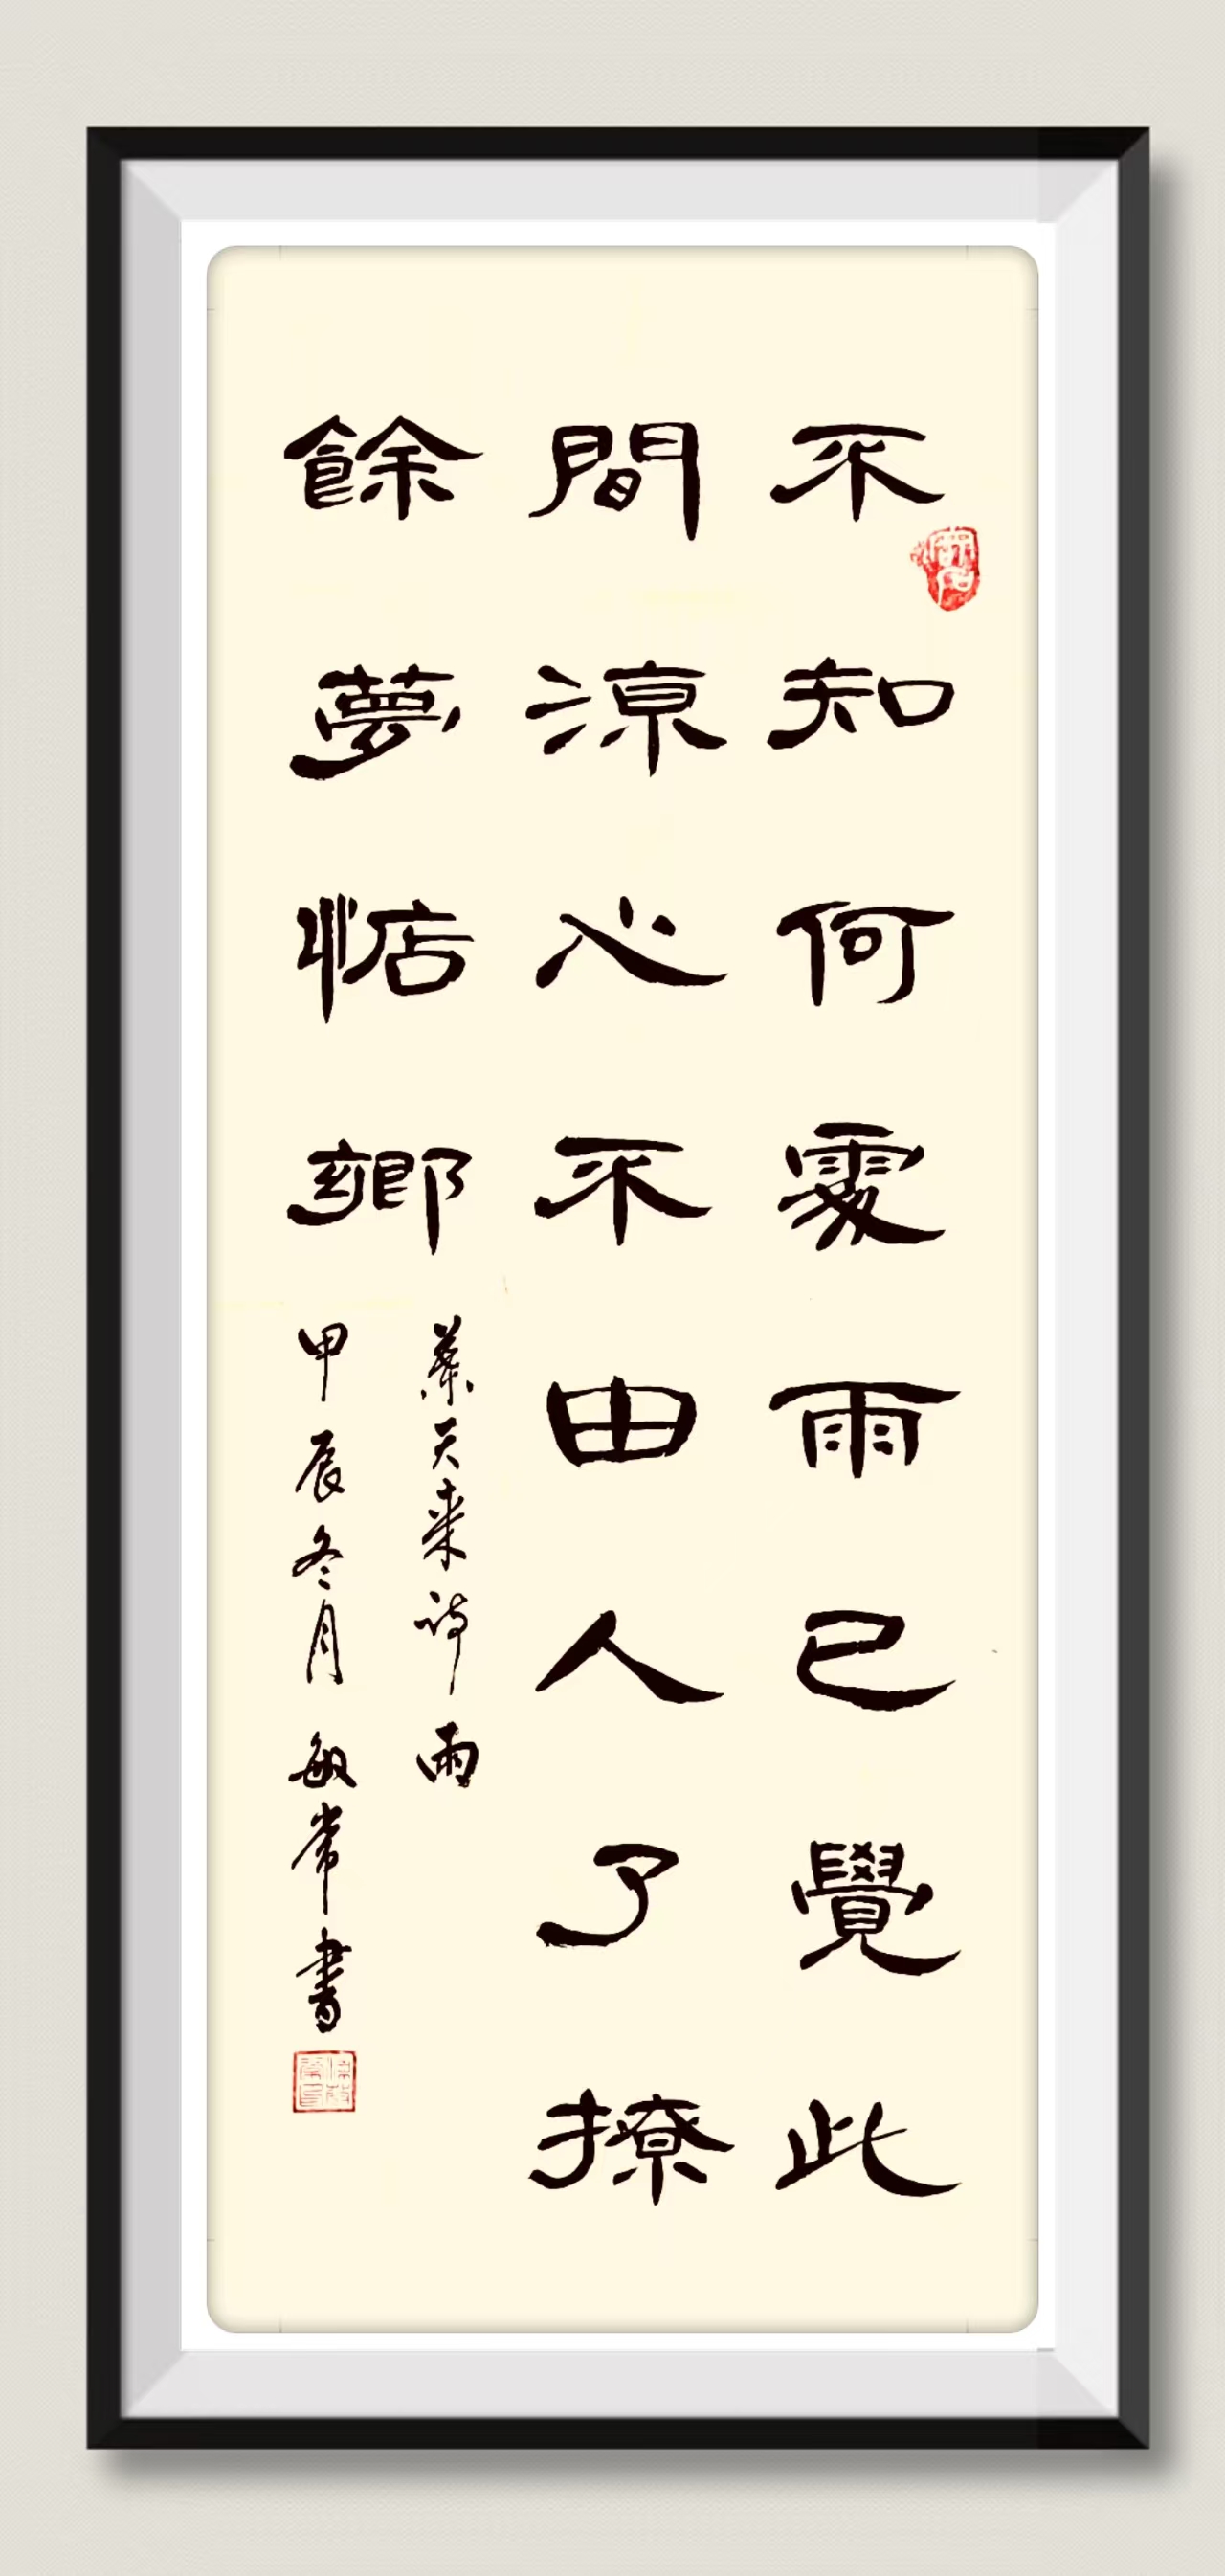 不知何處雨已覺此
間涼心不由人了撩
餘夢惦鄉
葉天來詩雨
甲辰冬月敏常書